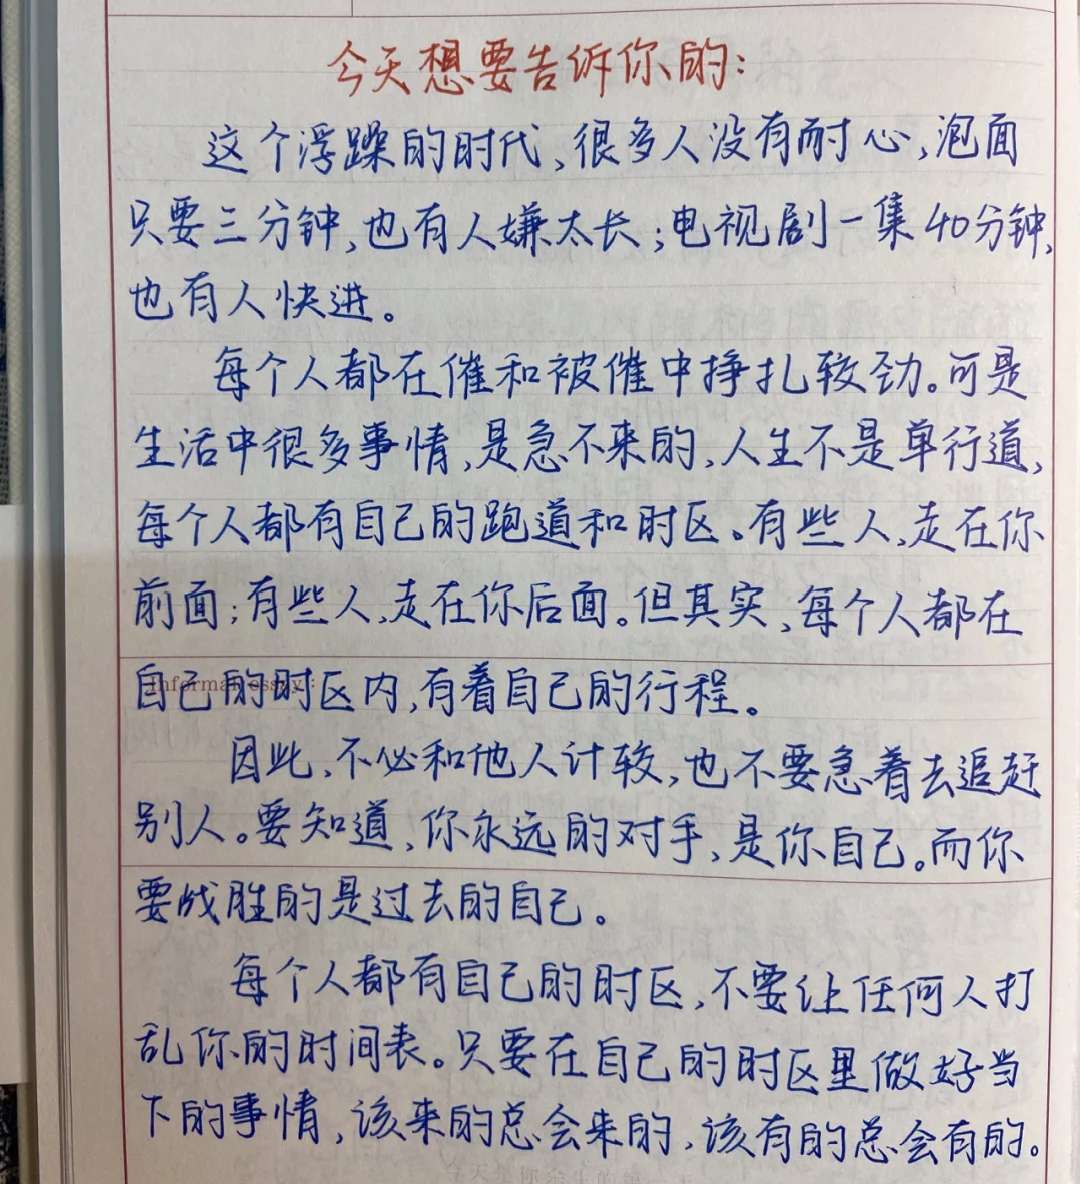 今天想要告诉你的:
这个浮躁的时代,很多人没有耐心,泡面
只要三分钟,也有人嫌太长;电视剧一集40分钟,
也有人快进。
每个人都在催和被催中挣扎较劲。可是
生活中很多事情,是急不来的,人生不是单行道,
每个人都有自己的跑道和时区。有些人,走在你
前面;有些人,走在你后面。但其实,每个人都在
自己的时区内,有着自己的行程。
Informal essay:
因此,不必和他人计较,也不要急着去追赶
别人。要知道,你永远的对手,是你自己。而你
要战胜的是过去的自己。
每个人都有自己的时区,不要让任何人打
乱你的时间表。只要在自己的时区里做好当
下的事情,该来的总会来的,该有的总会有的。